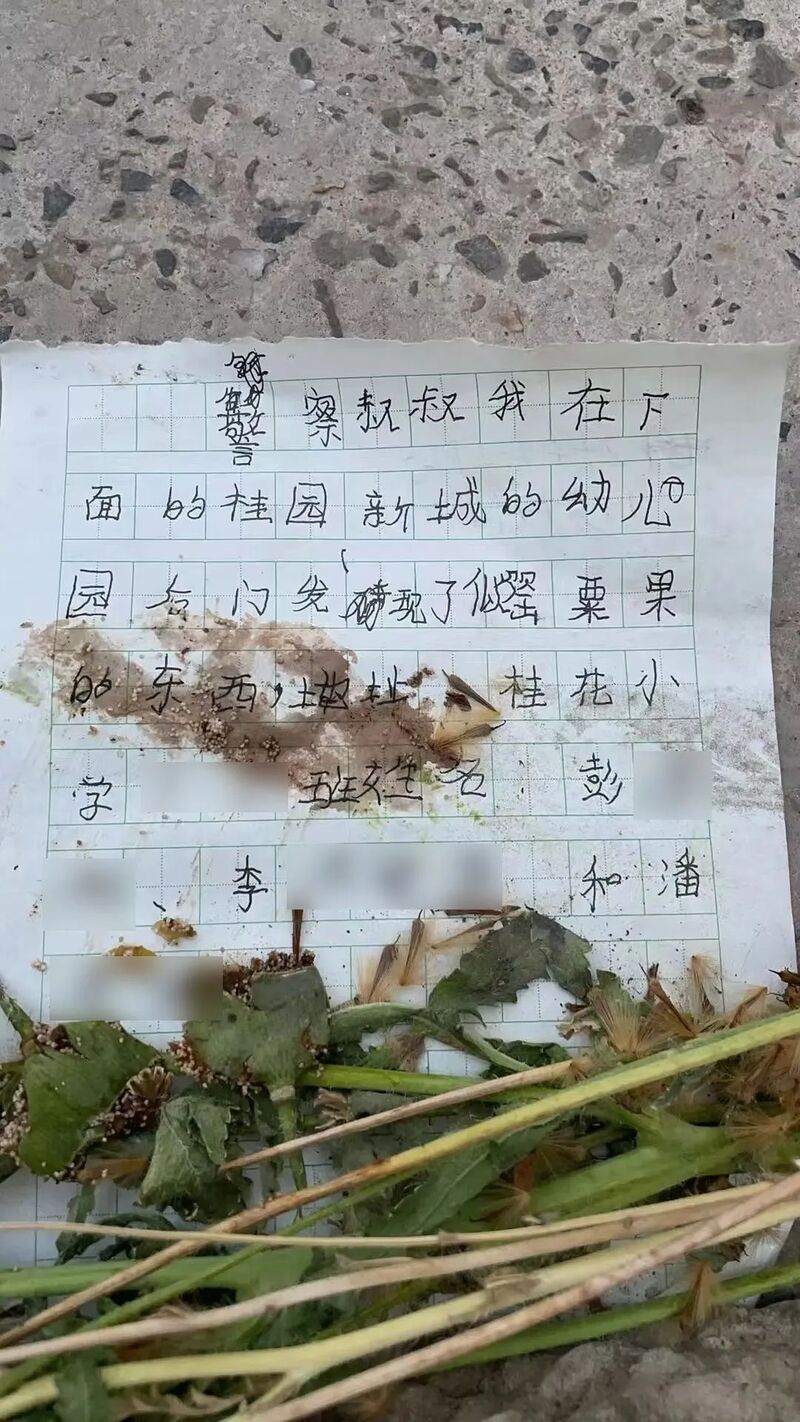 警察叔叔我在下
面的桂园新城的幼儿
园后门发现了似罂粟果
的东西,地址 桂花小
学 班姓名 彭
、李 和潘